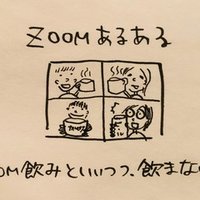 ZOOMあるある
OM飲みといいつつ、飲まな